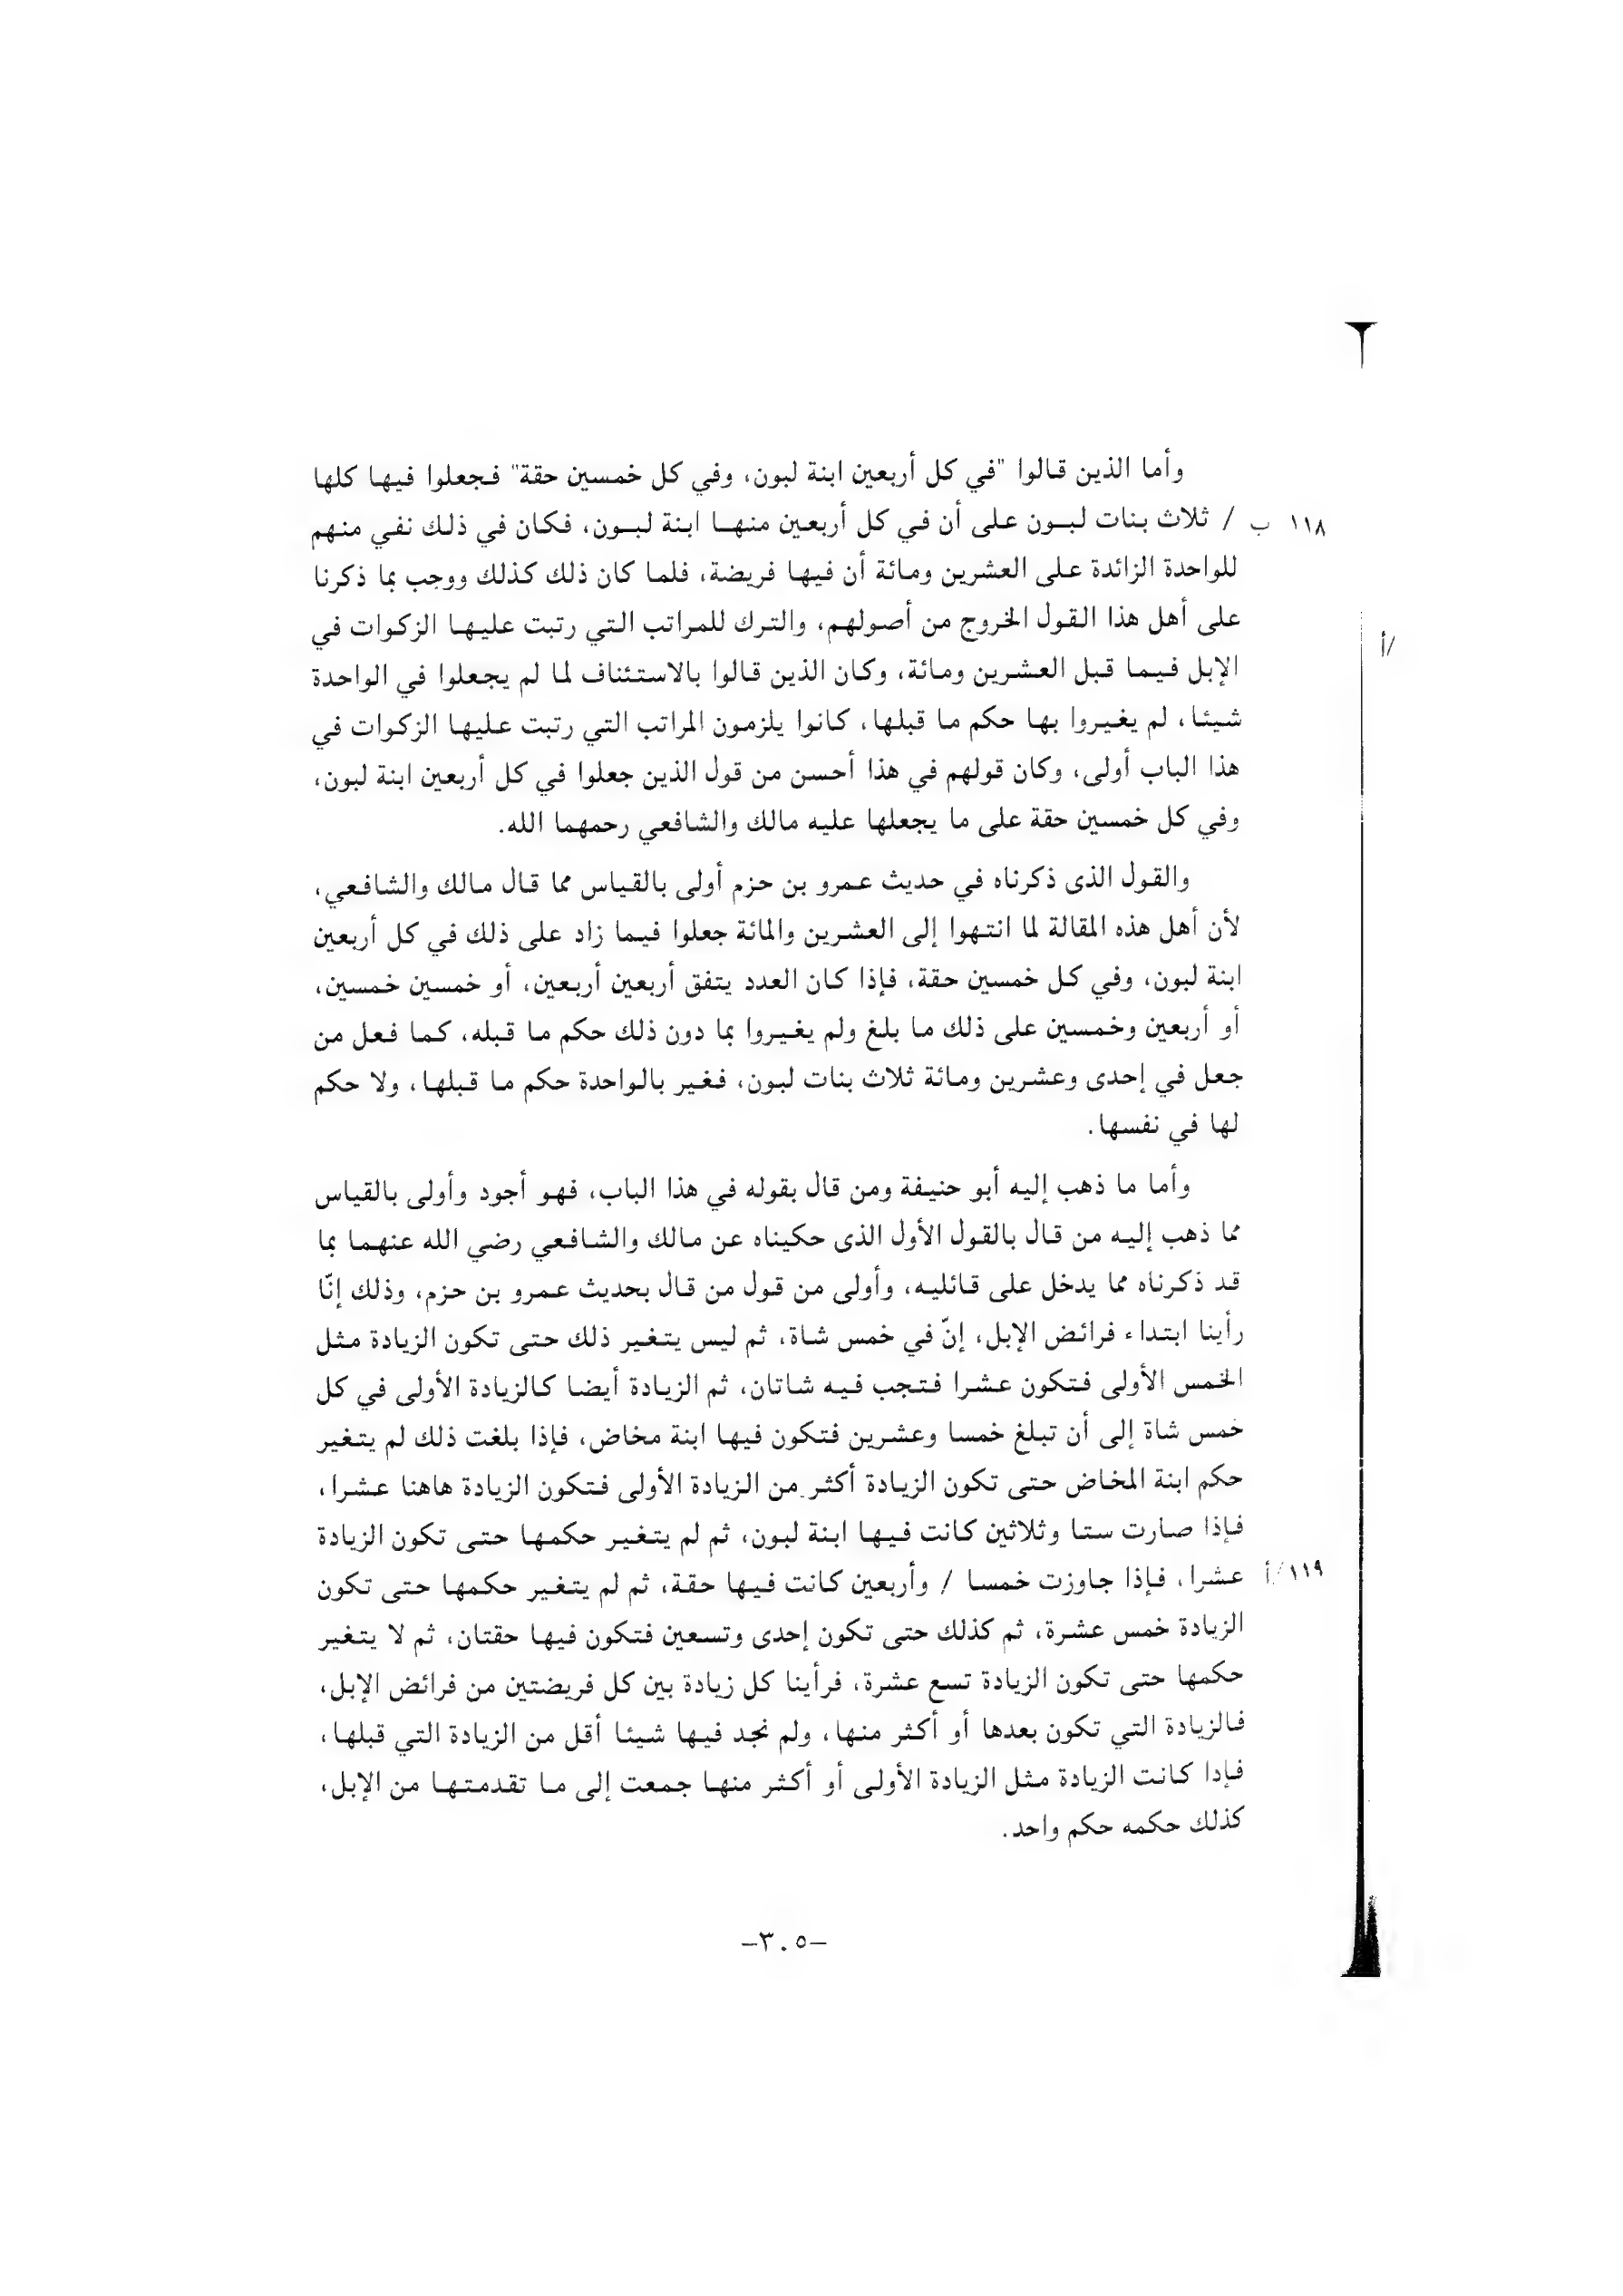 وأما الذين قالوا "في كل أربعين ابنة لبون، وفي كل خمسين حقة" فجعلوا فيها كلها
١١٨ ب / ثلاث بنات لبون على أن في كل أربعين منها ابنة لبون، فكان في ذلك نفي منهم
للواحدة الزائدة على العشرين ومائة أن فيها فريضة، فلما كان ذلك كذلك ووجب بما ذكرنا
على أهل هذا القول الخروج من أصولهم، والترك للمراتب التي رتبت عليها الزكوات في
/أ
الإبل فيما قبل العشرين ومائة، وكان الذين قالوا بالاستئناف لما لم يجعلوا في الواحدة
شيئا، لم يغيروا بها حكم ما قبلها، كانوا يلزمون المراتب التي رتبت عليها الزكوات في
هذا الباب أولى، وكان قولهم في هذا أحسن من قول الذين جعلوا في كل أربعين ابنة لبون،
وفي كل خمسين حقة على ما يجعلها عليه مالك والشافعي رحمهما الله.
والقول الذى ذكرناه في حديث عمرو بن حزم أولى بالقياس مما قال مالك والشافعي،
لأن أهل هذه المقالة لما انتهوا إلى العشرين والمائة جعلوا فيما زاد على ذلك في كل أربعين
ابنة لبون، وفي كل خمسين حقة، فإذا كان العدد يتفق أربعين أربعين، أو خمسين خمسين،
أو أربعين وخمسين على ذلك ما بلغ ولم يغيروا بما دون ذلك حكم ما قبله، كما فعل من
جعل في إحدى وعشرين ومائة ثلاث بنات لبون، فغير بالواحدة حكم ما قبلها، ولا حكم
لها في نفسها.
وأما ما ذهب إليه أبو حنيفة ومن قال بقوله في هذا الباب، فهو أجود وأولى بالقياس
مما ذهب إليه من قال بالقول الأول الذى حكيناه عن مالك والشافعي رضي الله عنهما بما
قد ذكرناه مما يدخل على قائليه، وأولى من قول من قال بحديث عمرو بن حزم، وذلك إنّا
رأينا ابتداء فرائض الإبل، إنّ في خمس شاة، ثم ليس يتغير ذلك حتى تكون الزيادة مثل
الخمس الأولى فتكون عشرا فتجب فيه شاتان، ثم الزيادة أيضا كالزيادة الأولى في كل
خمس شاة إلى أن تبلغ خمسا وعشرين فتكون فيها ابنة مخاض، فإذا بلغت ذلك لم يتغير
حكم ابنة المخاض حتى تكون الزيادة أكثر من الزيادة الأولى فتكون الزيادة هاهنا عشرا،
فإذا صارت ستا وثلاثين كانت فيها ابنة لبون، ثم لم يتغير حكمها حتى تكون الزيادة
١١٩/أ عشرا، فإذا جاوزت خمسا / وأربعين كانت فيها حقة، ثم لم يتغير حكمها حتى تكون
الزيادة خمس عشرة، ثم كذلك حتى تكون إحدى وتسعين فتكون فيها حقتان، ثم لا يتغير
حكمها حتى تكون الزيادة تسع عشرة، فرأينا كل زيادة بين كل فريضتين من فرائض الإبل،
فالزيادة التي تكون بعدها أو أكثر منها، ولم نجد فيها شيئا أقل من الزيادة التي قبلها،
فإدا كانت الزيادة مثل الزيادة الأولى أو أكثر منها جمعت إلى ما تقدمتها من الإبل،
كذلك حكمه حكم واحد.
-٣٠٥-